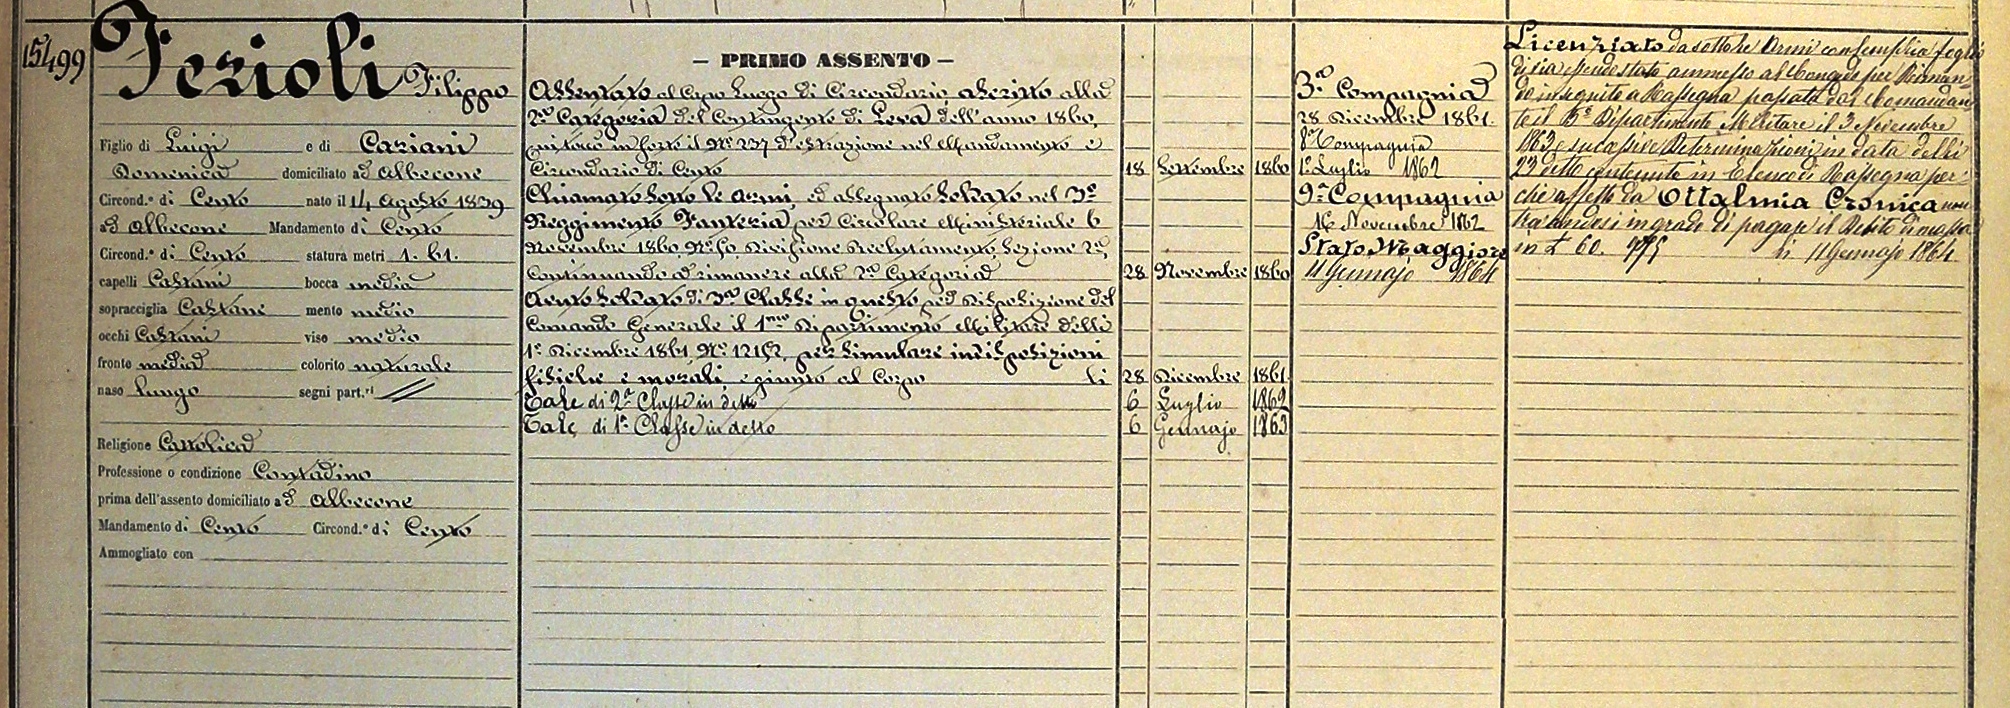 15499
Tezioli Filippo
Figlio di Luigi e di Caziani
Domenica domiciliato ad Albecone
Circond.º di Cento nato il 14 Agosto 1839
ad Albecone Mandamento di Cento
Circond.º di Cento statura metri 1. 61.
capelli Castani bocca media
sopracciglia Castane mento medio
occhi Castani viso medio
fronte media colorito naturale
naso lungo segni part.ri //
Religione Cattolica
Professione o condizione Contadino
prima dell'assento domiciliato ad Albecone
Mandamento di Cento Circond.º di Cento
Ammogliato con
– PRIMO ASSENTO –
Assentato al Capo Luogo di Circondario, ascritto alla
2ª Categoria del Contingente di Leva dell'anno 1860,
cui toccò in sorte il Nº 237 d'estrazione nel Mandamento e
Circondario di Cento 18 Settembre 1860
Chiamato sotto le armi, ed assegnato Soldato nel 3º
Reggimento Fanteria per Circolare Ministeriale 6
Novembre 1860, Nº 50, Divisione Reclutamento, Sezione 2ª,
continuando a rimanere alla 2ª Categoria 28 Novembre 1860
Soldato di 3ª Classe in questo per disposizione del
Comando Generale il 1mo Dipartimento Militare delli
1º Dicembre 1861, Nº 12152, per simulare indisposizioni
fisiche e morali, e giunto al Corpo li 28 Dicembre 1861
Tale di 2ª Classe in detto 6 Luglio 1862
Tale di 1ª Classe in detto 6 Gennajo 1863
3ª Compagnia
28 Dicembre 1861.
8ª Compagnia
1º Luglio 1862
9ª Compagnia
16 Novembre 1862
Stato Maggiore
11 Gennajo 1864
Licenziato da sotto le Armi con semplice foglio
di via essendo stato ammesso al Congedo per Riman-
do in seguito a Rassegna passata dal Comandan-
te il Dipartimento Militare il 3 Novembre
1863 e successive Determinazioni in data delli
23 detto contenute in Elenco di Rassegna per-
chè affetto da Ottalmia Cronica non
trovandosi in grado di pagare il Debito di massa
in £ 60. li 11 Gennajo 1864